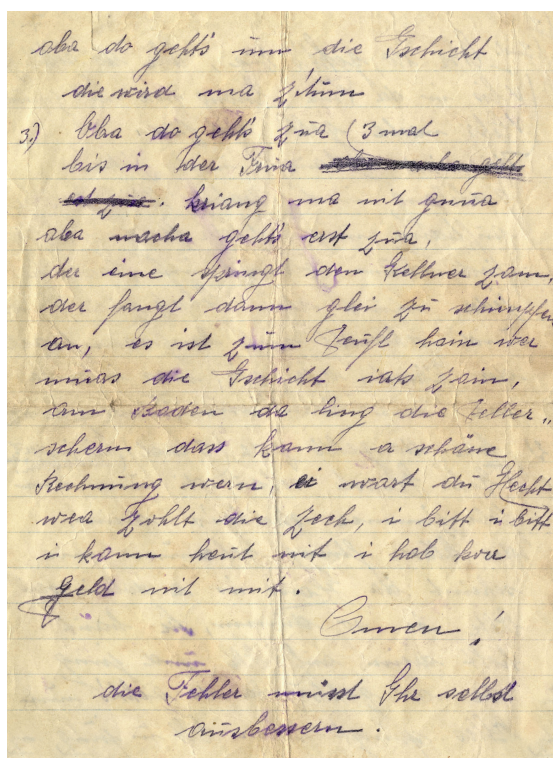 aba do geht's üm die Gschicht
die wird ma z'tüm
3.) Oba do geht's züa (3 mal
bis in der Früa
kriang ma nit gnüa
aba nacha geht's erst züa,
der eine springt den Kellner zam,
der fangt dann glei zü schimpfen
an, es ist züm Teüfl hain wer
müas die Gschicht iats zain,
am Boden da ling die Teller„
scherm dass kann a schöne
Rechnüng wern, ei wart dü Hecht
wea zohlt die Zech, i bitt i bitt
i kann heüt nit i hob koa
Geld nit mit.
Omen!
die Fehler müsst Ihr selbst
aüsbessern.